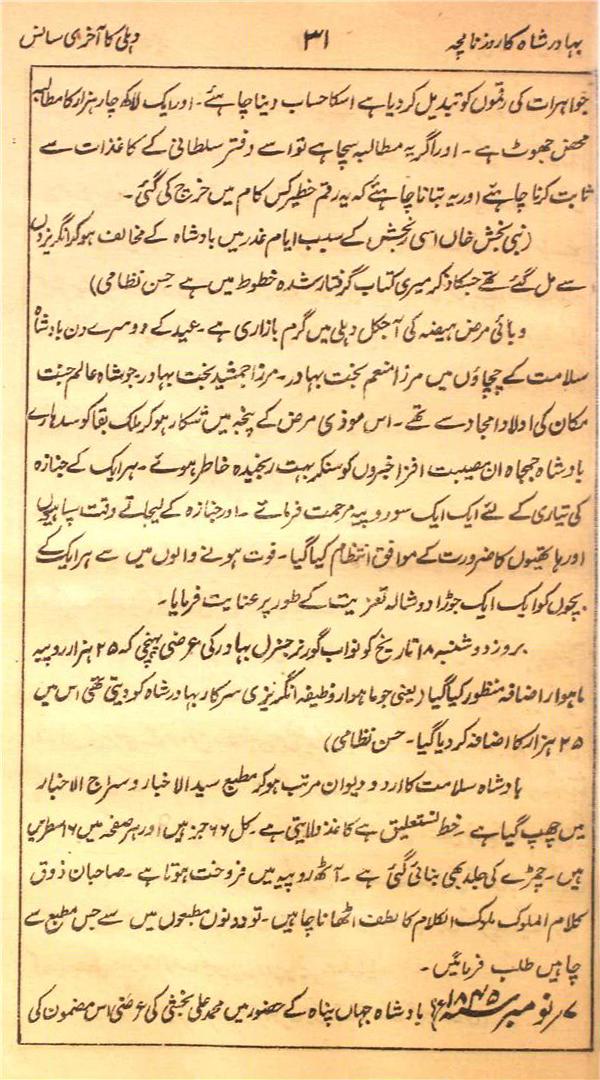 بہادر شاہ کا روزنامچہ ۳۱ دہلی کا آخری سانس
جواہرات کی رقموں کو تبدیل کر دیا ہے اسکا حساب دینا چاہئے۔ اور ایک لاکھ چار ہزار کا مطالبہ
محض جھوٹ ہے۔ اور اگر یہ مطالبہ سچا ہے تو اسے دفتر سلطانی کے کاغذات سے
ثابت کرنا چاہئے اور یہ بتانا چاہئے کہ یہ رقم خطیر کس کام میں خرچ کی گئی۔
(نبی بخش خاں اسی رنجش کے سبب ایام غدر میں بادشاہ کے مخالف ہوکر انگریزوں
سے مل گئے تھے جسکا ذکر میری کتاب گرفتار شدہ خطوط میں ہے حسن نظامی)
وبائی مرض ہیضہ کی آجکل دہلی میں گرم بازاری ہے۔ عید کے دوسرے دن بادشاہ
سلامت کے چچاؤں میں مرزا منعم بخت بہادر۔ مرزا جمشید بخت بہادر۔ جو شاہ عالم جنت
مکان کی اولاد امجاد سے تھے۔ اس موذی مرض کے پنجہ میں شکار ہوکر ملک بقا کو سدہارے
بادشاہ جمجاہ ان مصیبت افزا خبروں کو سنکر بہت رنجیدہ خاطر ہوئے۔ ہر ایک کے جنازہ
کی تیاری کے لئے ایک ایک سو روپیہ مرحمت فرمائے۔ اور جنازہ کے لیجاتے وقت سپاہیوں
اور ہاتھیوں کا ضرورت کے موافق انتظام کیا گیا۔ فوت ہونے والوں میں سے ہر ایک کے
بچوں کو ایک ایک جوڑا دوشالہ تعزیت کے طور پر عنایت فرمایا۔
بروز دوشنبہ ۱۸ تاریخ کو نواب گورنر جنرل بہادر کی عرضی پہنچی کہ ۲۵ ہزار روپیہ
ماہوار اضافہ منظور کیا گیا (یعنی جو ماہوار وظیفہ انگریزی سرکار بہادر شاہ کو دیتی تھی اس میں
۲۵ ہزار کا اضافہ کر دیا گیا۔ حسن نظامی)
بادشاہ سلامت کا اردو دیوان مرتب ہوکر مطبع سید الاخبار و سراج الاخبار
میں چھپ گیا ہے۔ خط نستعلیق ہے کاغذ ولایتی ہے۔ کل ۶۶ جز ہیں اور ہر صفحہ میں ۱۶ سطریں
ہیں۔ چمڑے کی جلد بھی بنائی گئی ہے۔ آٹھ روپیہ میں فروخت ہوتا ہے۔ صاحبان ذوق
کلام الملوک ملوک الکلام کا لطف اٹھانا چاہیں۔ تو دونوں مطبعوں میں سے جس مطبع سے
چاہیں طلب فرمائیں۔
۷؍ نومبر ۱۸۴۵ء بادشاہ جہاں پناہ کے حضور میں محمد علی بخشی کی عرضی اس مضمون کی